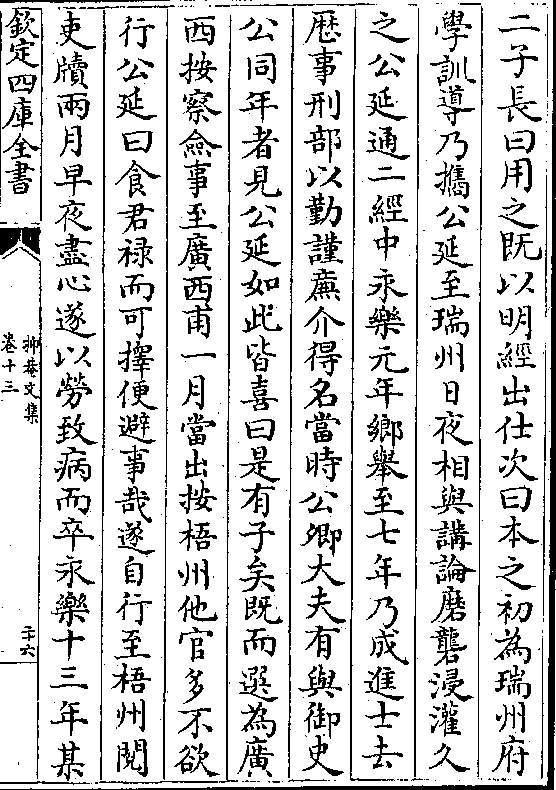 二子長曰用之既以明經出仕次曰本之初為瑞州府
學訓導乃攜公延至瑞州日夜相與講論磨礱浸灌久
之公延通二經中永樂元年鄉舉至七年乃成進士去
歴事刑部以勤謹亷介得名當時公卿大夫有與御史
公同年者見公延如此皆喜曰是有子矣既而選為廣
西按察僉事至廣西甫一月當出按梧州他官多不欲
行公延曰食君禄而可擇便避事哉遂自行至梧州閲
吏牘兩月早夜盡心遂以勞致病而卒永樂十三年某
欽定四庫全書
抑菴文集
卷十三
二十六